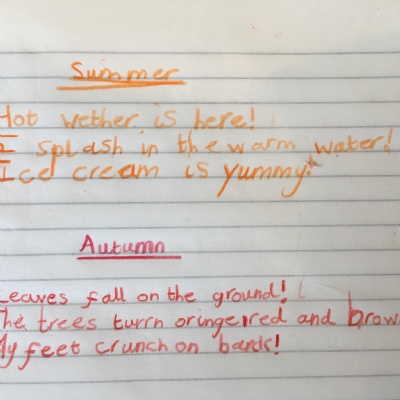 Summer
Hot wether is here!
I splash in the warm water!
Ice cream is yummy!
Autumn
Leaves fall on the ground!
The trees turrn oringe red and brown
My feet crunch on